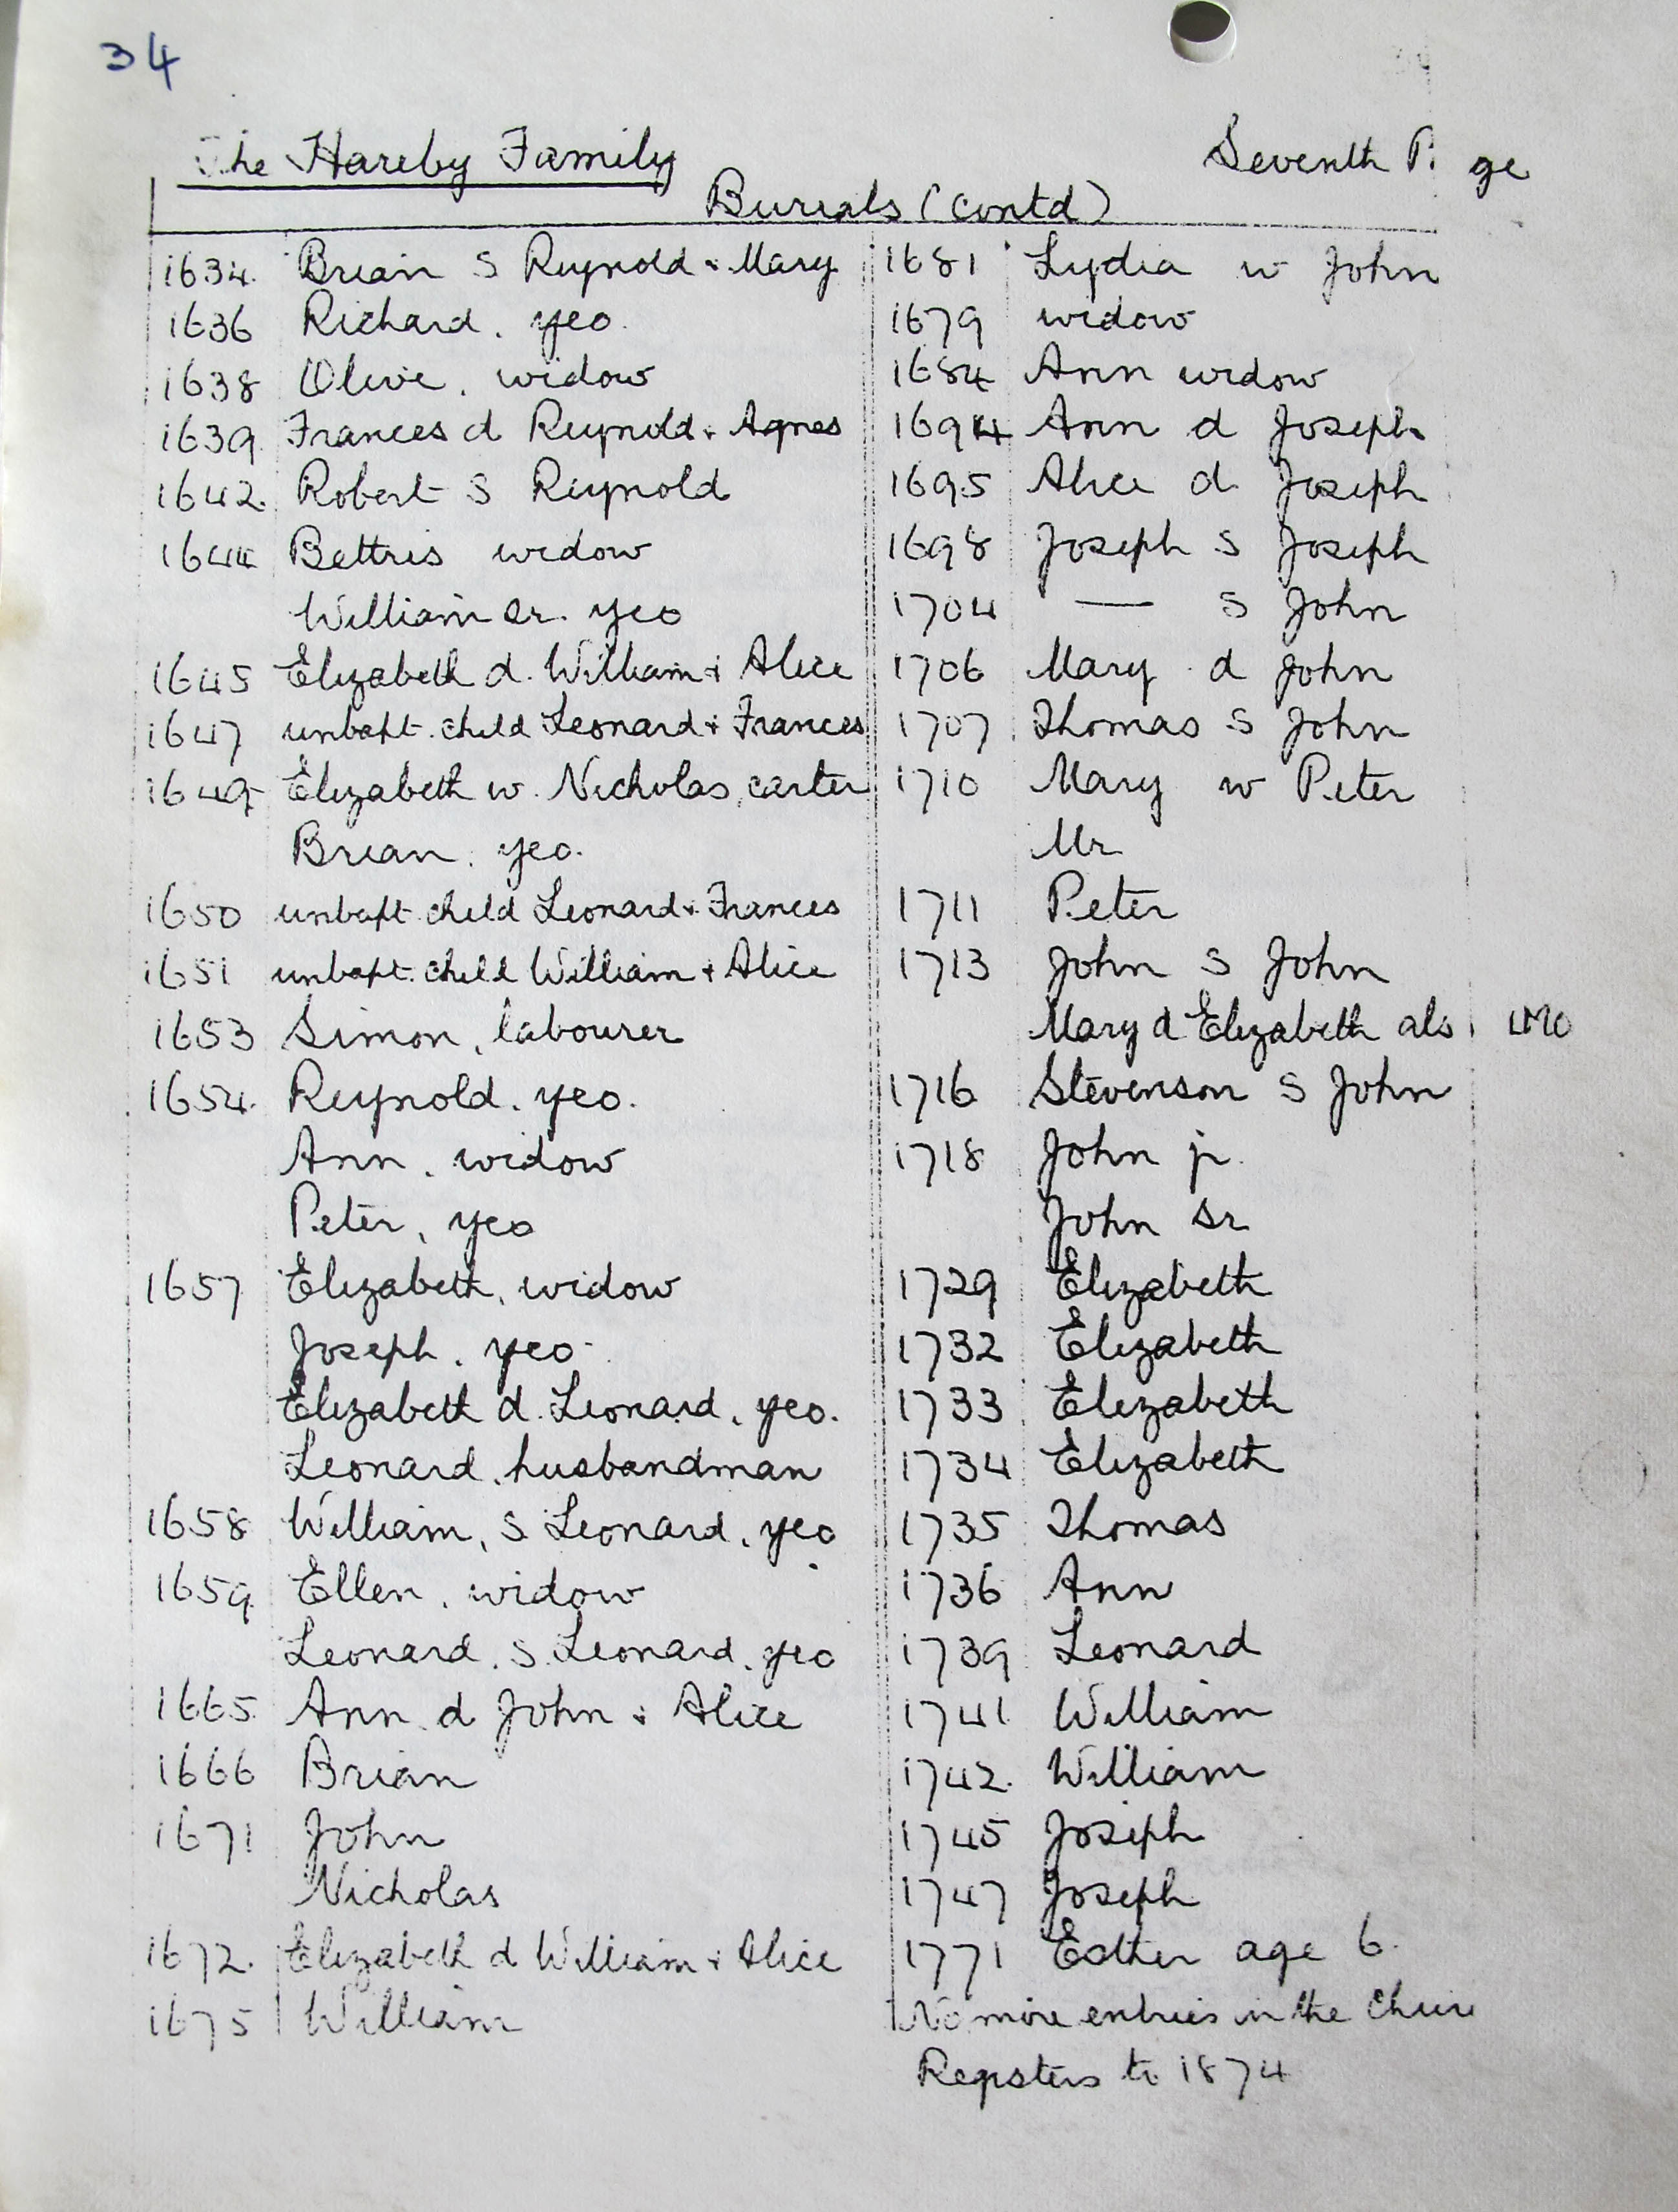 34
The Hareby Family
Seventh Page
Burials (contd)
1634. Brian S Reynold & Mary
1636 Richard, yeo.
1638 Olive, widow
1639 Frances d Reynold & Agnes
1642. Robert S Reynold
1644 Bettris widow
William Sr. yeo
1645 Elizabeth d. William & Alice
1647 unbapt. child Leonard & Frances
1649 Elizabeth w. Nicholas, carter
Brian, yeo.
1650 unbapt child Leonard & Frances
1651 unbapt. child William & Alice
1653 Simon, labourer
1654. Reynold, yeo.
Ann, widow
Peter, yeo
1657 Elizabeth, widow
Joseph, yeo.
Elizabeth d. Leonard, yeo.
Leonard, husbandman
1658 William, S Leonard, yeo
1659 Ellen, widow
Leonard, S. Leonard, yeo
1665 Ann d John & Alice
1666 Brian
1671 John
Nicholas
1672. Elizabeth d William & Alice
1675 William
1681 Lydia w John
1679 widow
1684 Ann widow
1694 Ann d Joseph
1695 Alice d Joseph
1698 Joseph S Joseph
1704 — S John
1706 Mary d John
1707 Thomas S John
1710 Mary w Peter
Mr
1711 Peter
1713 John S John
Mary d Elizabeth als
1716 Stevenson S John
1718 John jr.
John Sr
1729 Elizabeth
1732 Elizabeth
1733 Elizabeth
1734 Elizabeth
1735 Thomas
1736 Ann
1739 Leonard
1741 William
1742. William
1745 Joseph
1747 Joseph
1771 Esther age 6.
No more entries in the
Registers to 1874